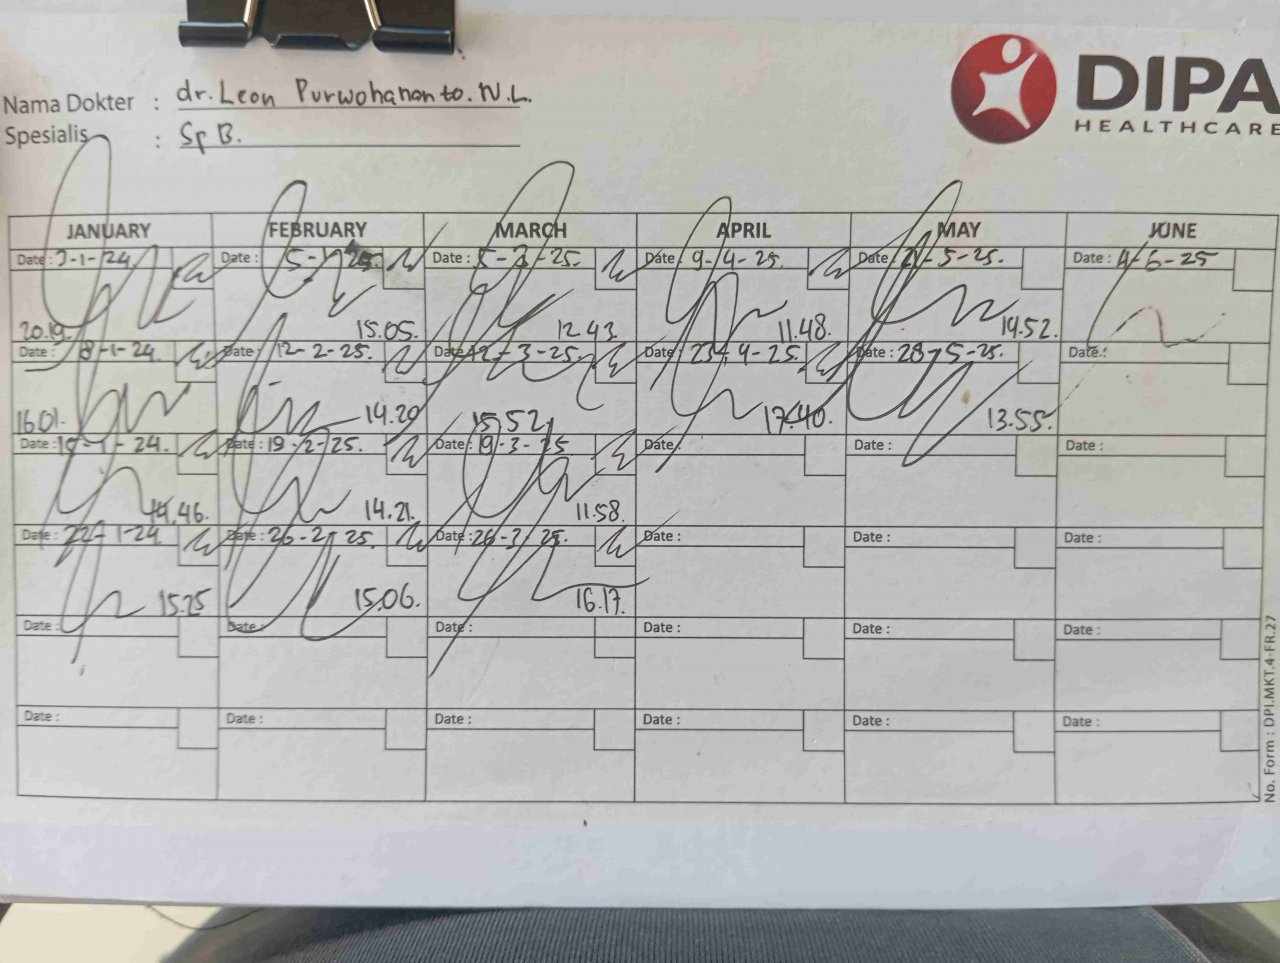 DIPA
HEALTHCARE
Nama Dokter : dr. Leon Purwohananto. N.L.
Spesialis : Sp B.
JANUARY FEBRUARY MARCH APRIL MAY JUNE
Date : 3-1-24 Date : 5-25. Date : 5-3-25. Date : 9-4-25. Date : 5-25. Date : 4-6-25
20.19 15.05. 12.43. 11.48. 14.52.
Date : 8-1-24. Date : 12-2-25. Date : 12-3-25. Date : 23-4-25. Date : 28-5-25. Date :
16.01. 14.20 15.52 17.40. 13.55.
Date : 15-1-24. Date : 19-2-25. Date : 19-3-25 Date : Date : Date :
14.46. 14.21. 11.58.
Date : 22-1-24 Date : 26-2-25. Date : 26-3-25. Date : Date : Date :
15.25 15.06. 16.17.
Date : Date : Date : Date : Date : Date :
Date : Date : Date : Date : Date : Date :
No. Form : DPI.MKT.4-FR.27